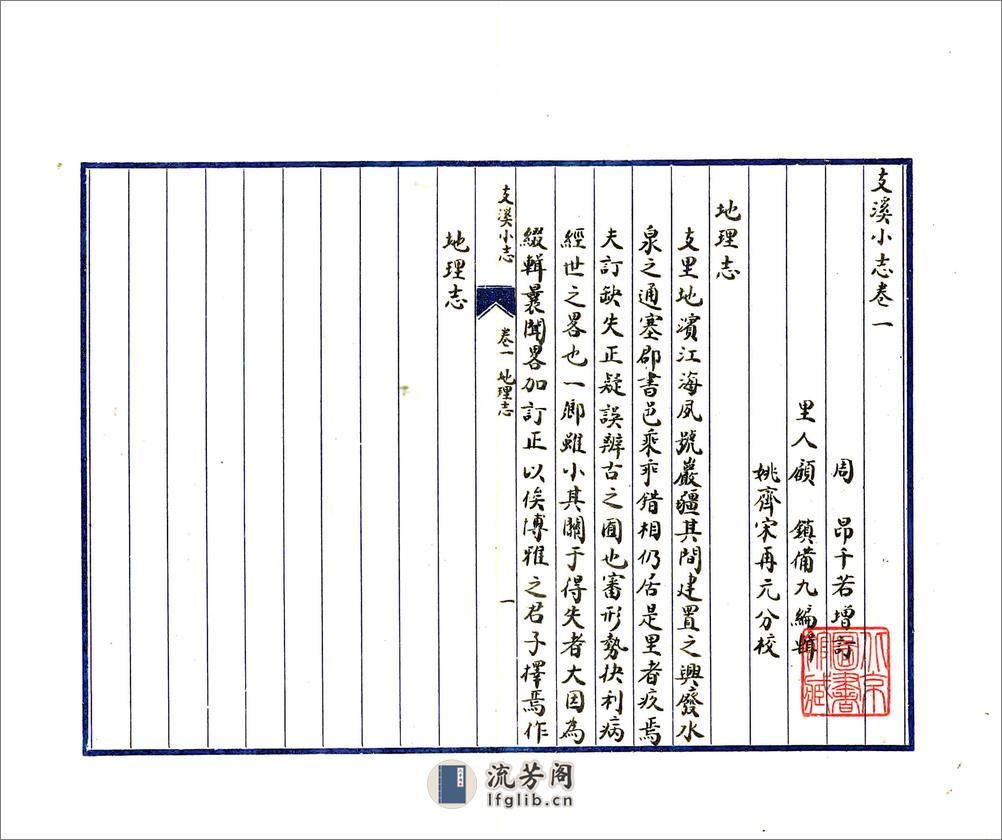 支溪小志卷一
周　昂千若增訂
里人顧　鎮備九編輯
姚齊宋再元分校
地理志
支里地濱江海夙號巖疆其間建置之興廢水
泉之通塞郡書邑乘乖錯相仍居是里者疚焉
夫訂缺失正疑誤辨古之囿也審形勢抉利病
經世之畧也一鄉雖小其關于得失者大因為
綴輯曩聞畧加訂正以俟博雅之君子擇焉作
支溪小志
卷一 地理志
一
地理志
北京圖書館藏
流芳阁
lfglib.cn